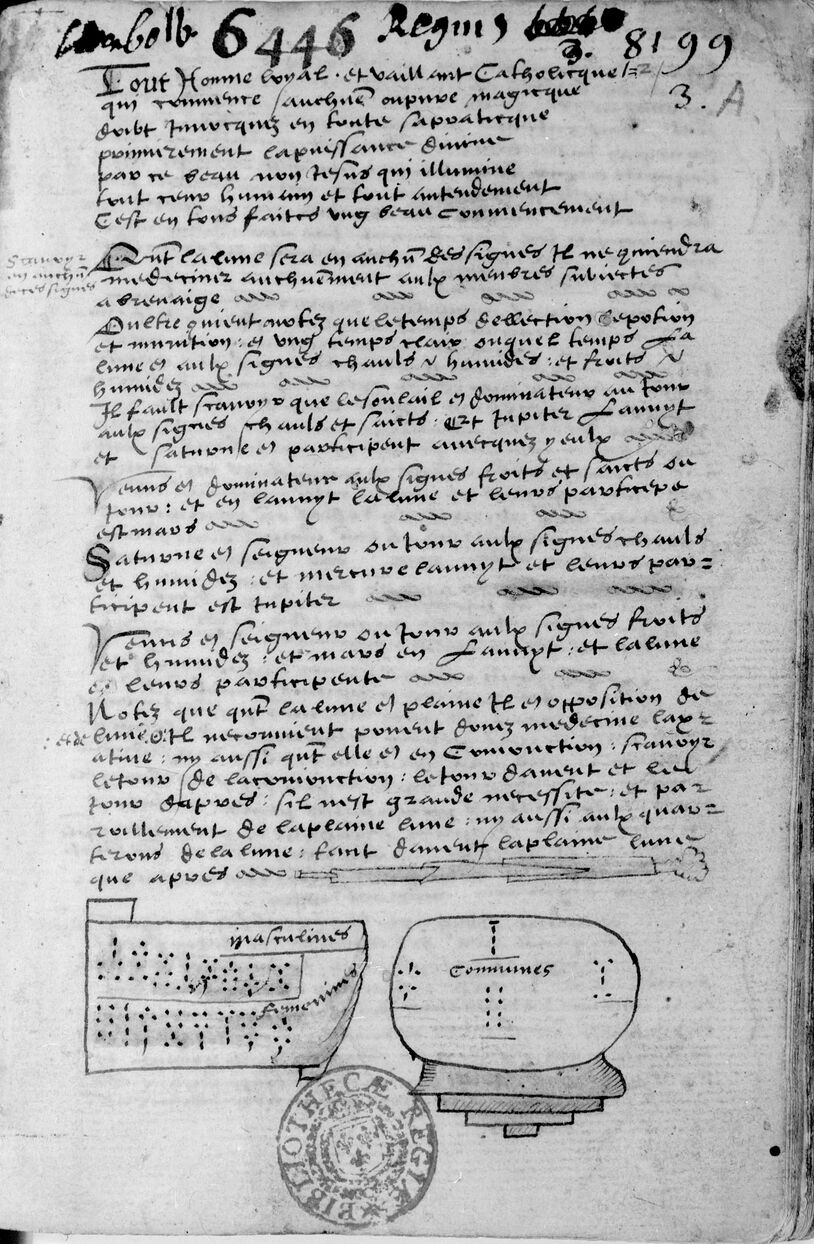 6446 Regius
8199
3.
3. A
Tout Homme loyal et vaillant Catholicque
qui commence auchune oupvre magicque
doibt Invocquez en toute sa praticque
primierement la puissance divine
par ce beau nom Jesus qui illumine
tout ceur humain et tout antendement
C'est en tous faictz ung beau Commencement
Scavoyr
en auchun
de ces signes
Qunt la lune sera en auchun des signes Il ne quiendra
medeciner auchunement aulx menbres subiectes
a brevaige
Oultre quient notez que le temps dellection de potion
et minution : est ung temps clair ouquel temps La
lune est aulx signes chaulx humides : et froits
humidez
Il fault scavoyr que le soulail est dominateur au Jour
aulx signes chaulx et saicts : Et Jupiter Lannyt
et Saturne en participent avecquez yeulx
Venus est dominateur aulx signes froits et saicts ou
Jour : et en lannyt la lune et leurs participe
est mars
Saturne est seigneur ou Jour aulx signes chauls
et humidez : et mercure lannyt et leurs par=
ticipent est Jupiter
Venus est seigneur ou Jour aulx signes froits
et humidez : et mars en Lannyt : et la lune
est leurs participente
Notez que qunt la lune est plaine Il est opposition de
: et de lune Il ne convient poment donez medecine lax=
atine : ny aussi qunt elle est en Conionction : scavoyr
le Jour de la conionction : le Jour davent et le
Jour dapres : sil nest grande necessite : et pa=
roillement de la plaine lune : ny aussi aulx quar=
terons de la lune : tant davent la plaine lune
que apres
masculines
femenines
Communes
BIBLIOTHECÆ REGIÆ